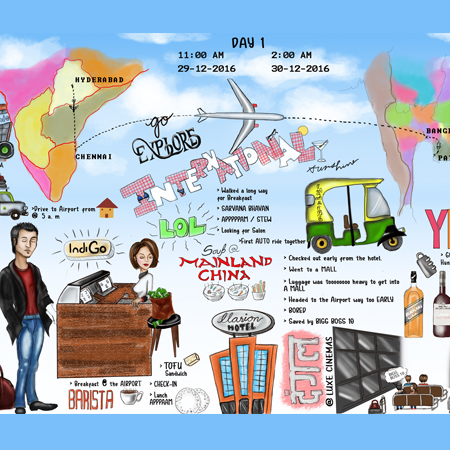 DAY 1
11:00 AM
2:00 AM
29-12-2016
30-12-2016
HYDERABAD
CHENNAI
BANG
PA
go
EXPLORE
INTERNATIONAL
sunshine
Drive to Airport from
@ 5 a.m
IndiGo
LOL
Walked a long way
for Breakfast
SARVANA BHAVAN
APPPPAM / STEW
Looking for Salon
First AUTO ride together
Soup @
MAINLAND
CHINA
Checked out early from the hotel.
Went to a MALL
Luggage was tooooooo heavy to get into
A MALL
Headed to the Airport way too EARLY
BORED
Saved by BIGG BOSS 10
Clarion
HOTEL
TOFU
Sandwich
Breakfast @ the AIRPORT
BARISTA
CHECK-IN
Lunch
APPPAAM
दंगल
@ LUXE CINEMAS
Y